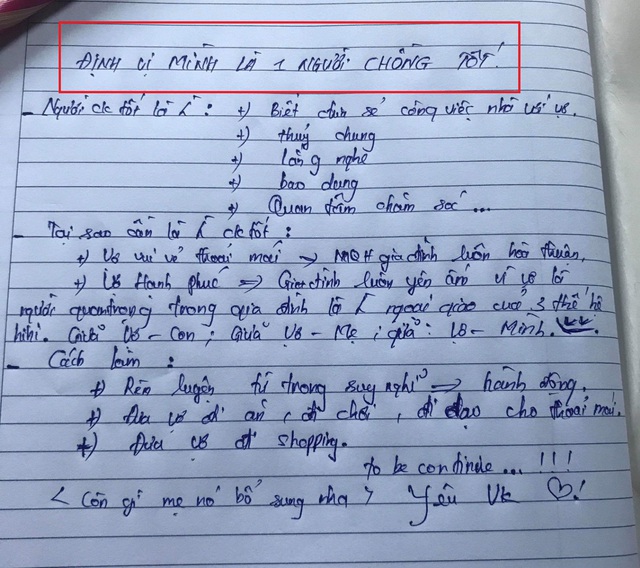 ĐỊNH VỊ MÌNH LÀ 1 NGƯỜI CHỒNG TỐT!
- Người ck tốt là ntn: +) Biết chia sẻ công việc nhà với vợ.
+) thuỷ chung
+) lắng nghe
+) bao dung
+) Quan tâm chăm sóc...
- Tại sao cần là ck tốt:
+) Vợ vui vẻ thoải mái → MQH gia đình luôn hoà thuận.
+) Vợ Hạnh phúc ⇒ Gia đình luôn yên ấm vì vợ là
người quan trọng trong gia đình là ngoại giao cuả 3 thế hệ
hihi. Giữã Vợ - Con; Giữã Vợ - Mẹ; giữã: Vợ - Mình.
- Cách làm:
+) Rèn luyện từ trong suy nghĩ ⇒ hành động.
+) Đưa vợ đi ăn, đi chơi, đi dạo cho thoải mái.
+) Đưa vợ đi shopping.
to be continue...!!!
< Còn gì mẹ nó bổ sung nha > Yêu Vk ♡!